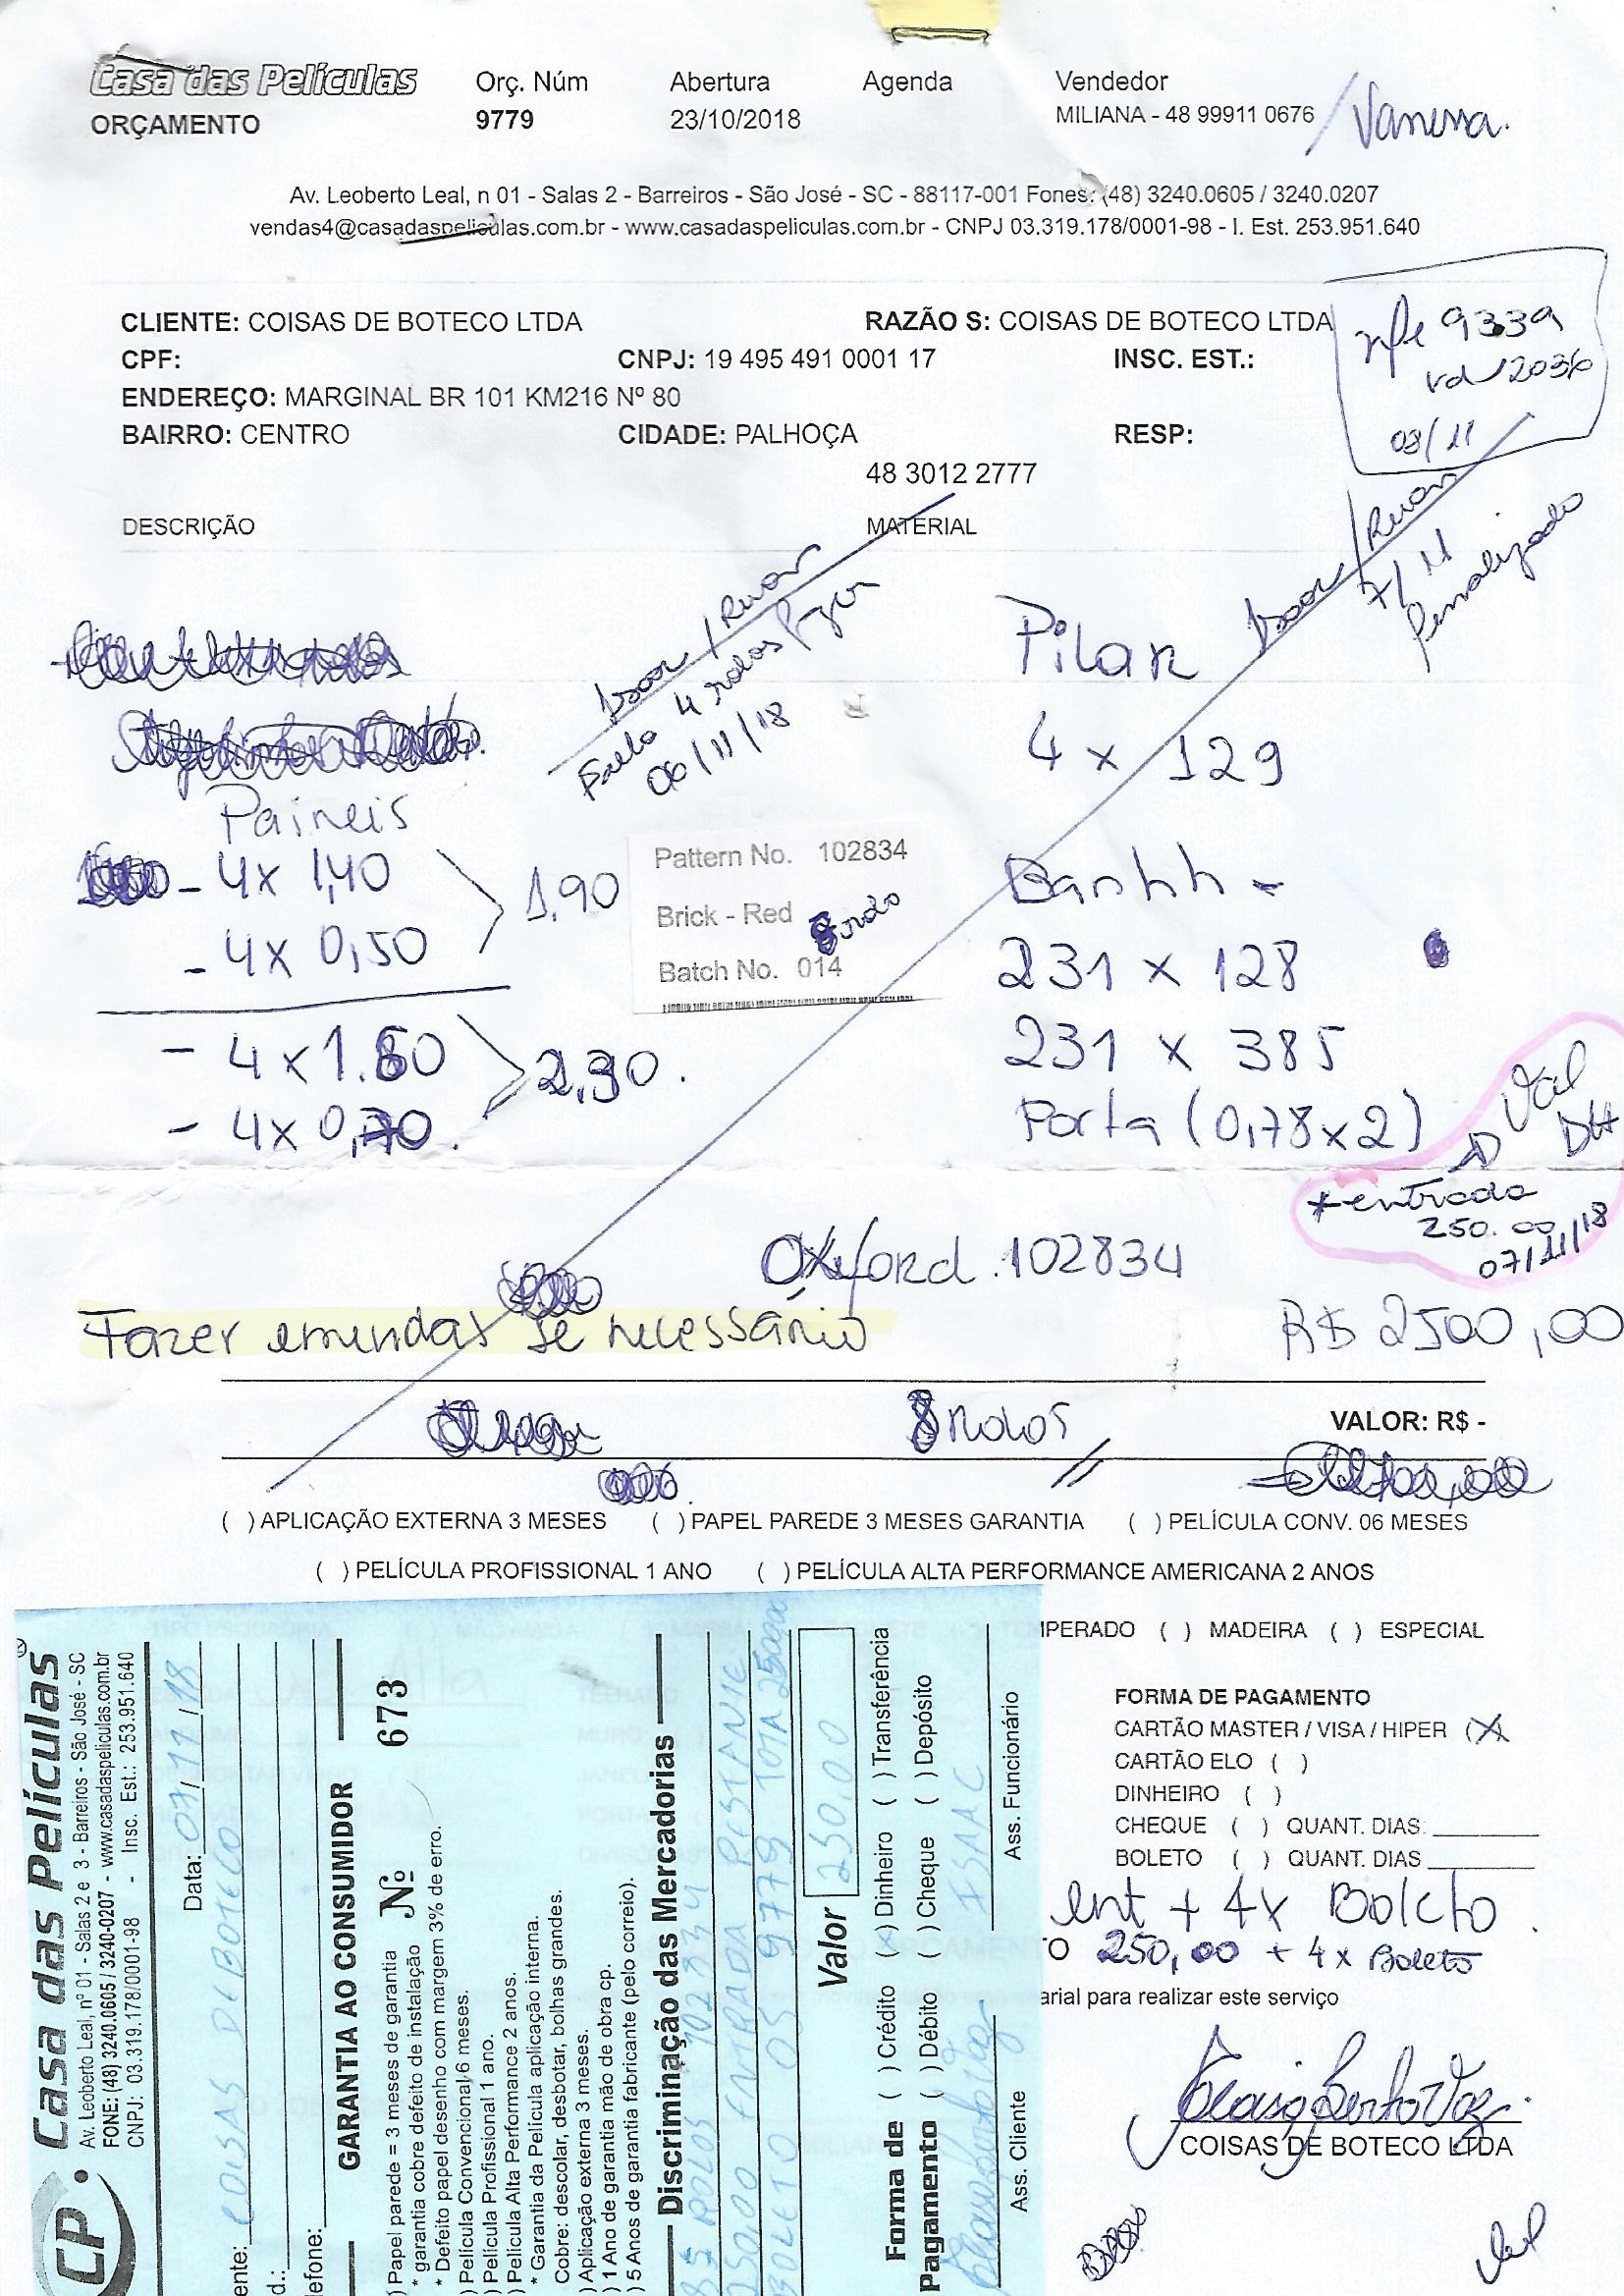 Casa das Películas
ORÇAMENTO
Orç. Núm
9779
Abertura
23/10/2018
Agenda
Vendedor
MILIANA - 48 99911 0676 / Vanessa.
Av. Leoberto Leal, n 01 - Salas 2 - Barreiros - São José - SC - 88117-001 Fones: (48) 3240.0605 / 3240.0207
vendas4@casadaspeliculas.com.br - www.casadaspeliculas.com.br - CNPJ 03.319.178/0001-98 - I. Est. 253.951.640
nfe 9339
vd 2036
08/11
CLIENTE: COISAS DE BOTECO LTDA
RAZÃO S: COISAS DE BOTECO LTDA
CPF:
CNPJ: 19 495 491 0001 17
INSC. EST.:
ENDEREÇO: MARGINAL BR 101 KM216 Nº 80
BAIRRO: CENTRO
CIDADE: PALHOÇA
RESP:
48 3012 2777
DESCRIÇÃO
MATERIAL
Isaac / Renan
Falta 4 rolos
06/11/18
Isaac / Renan
7/11
Penalizado
Paineis
- 4x 1,40
- 4x 0,50
1.90
- 4x1.60
- 4x 0,70.
2,30.
Pattern No. 102834
Brick - Red
Batch No. 014
Pilar
4 x 129
Banhh -
231 x 128
231 x 385
Porta (0,78x2)
* entrada
250.00
07/11/18
Oxford.102834
Fazer emendas se necessário
R$ 2500,00
8 Rolos
VALOR: R$ -
( ) APLICAÇÃO EXTERNA 3 MESES ( ) PAPEL PAREDE 3 MESES GARANTIA ( ) PELÍCULA CONV. 06 MESES
( ) PELÍCULA PROFISSIONAL 1 ANO ( ) PELÍCULA ALTA PERFORMANCE AMERICANA 2 ANOS
IPERADO ( ) MADEIRA ( ) ESPECIAL
FORMA DE PAGAMENTO
CARTÃO MASTER / VISA / HIPER (X)
CARTÃO ELO ( )
DINHEIRO ( )
CHEQUE ( ) QUANT. DIAS:
BOLETO ( ) QUANT. DIAS
ent + 4x Boleto.
O 250,00 + 4x Boleto
arial para realizar este serviço
COISAS DE BOTECO LTDA
CP
Casa das Películas
Av. Leoberto Leal, nº 01 - Salas 2 e 3 - Barreiros - São José - SC
FONE: (48) 3240.0605 / 3240-0207 - www.casadaspeliculas.com.br
CNPJ: 03.319.178/0001-98 - Insc. Est.: 253.951.640
Data: 07/11/18
ente: COISAS DE BOTECO
d.:
efone:
GARANTIA AO CONSUMIDOR
Nº 673
) Papel parede = 3 meses de garantia
* garantia cobre defeito de instalação
* Defeito papel desenho com margem 3% de erro.
) Película Convencional 6 meses.
) Película Profissional 1 ano.
) Película Alta Performance 2 anos.
* Garantia da Película aplicação interna.
Cobre: descolar, desbotar, bolhas grandes.
) Aplicação externa 3 meses.
) 1 Ano de garantia mão de obra cp.
) 5 Anos de garantia fabricante (pelo correio).
Discriminação das Mercadorias
ROLOS 102834
250,00 ENTRADA RESTANTE
BOLETO OS 9779 TOTA 2500,00
Valor 250,00
Forma de Pagamento
( ) Crédito (x) Dinheiro ( ) Transferência
( ) Débito ( ) Cheque ( ) Depósito
ISAAC
Ass. Cliente
Ass. Funcionário